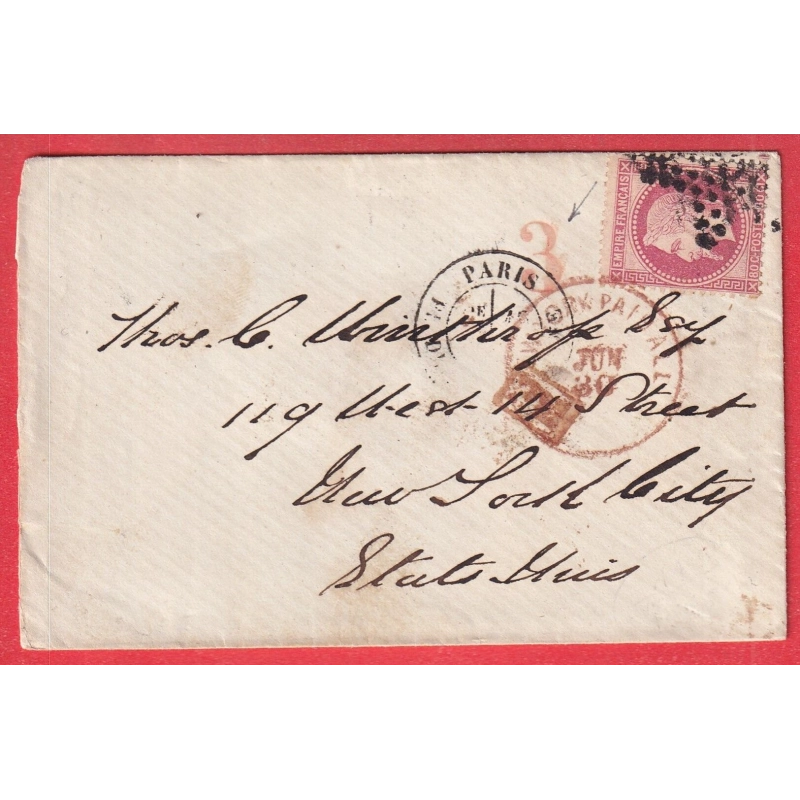 EMPIRE FRANÇAIS
80C POSTES 80C
3
PARIS
PAID ALL
JUN
30
Thos. C. Winthrop Esq
119 West 14 Street
New York City
Etats Unis